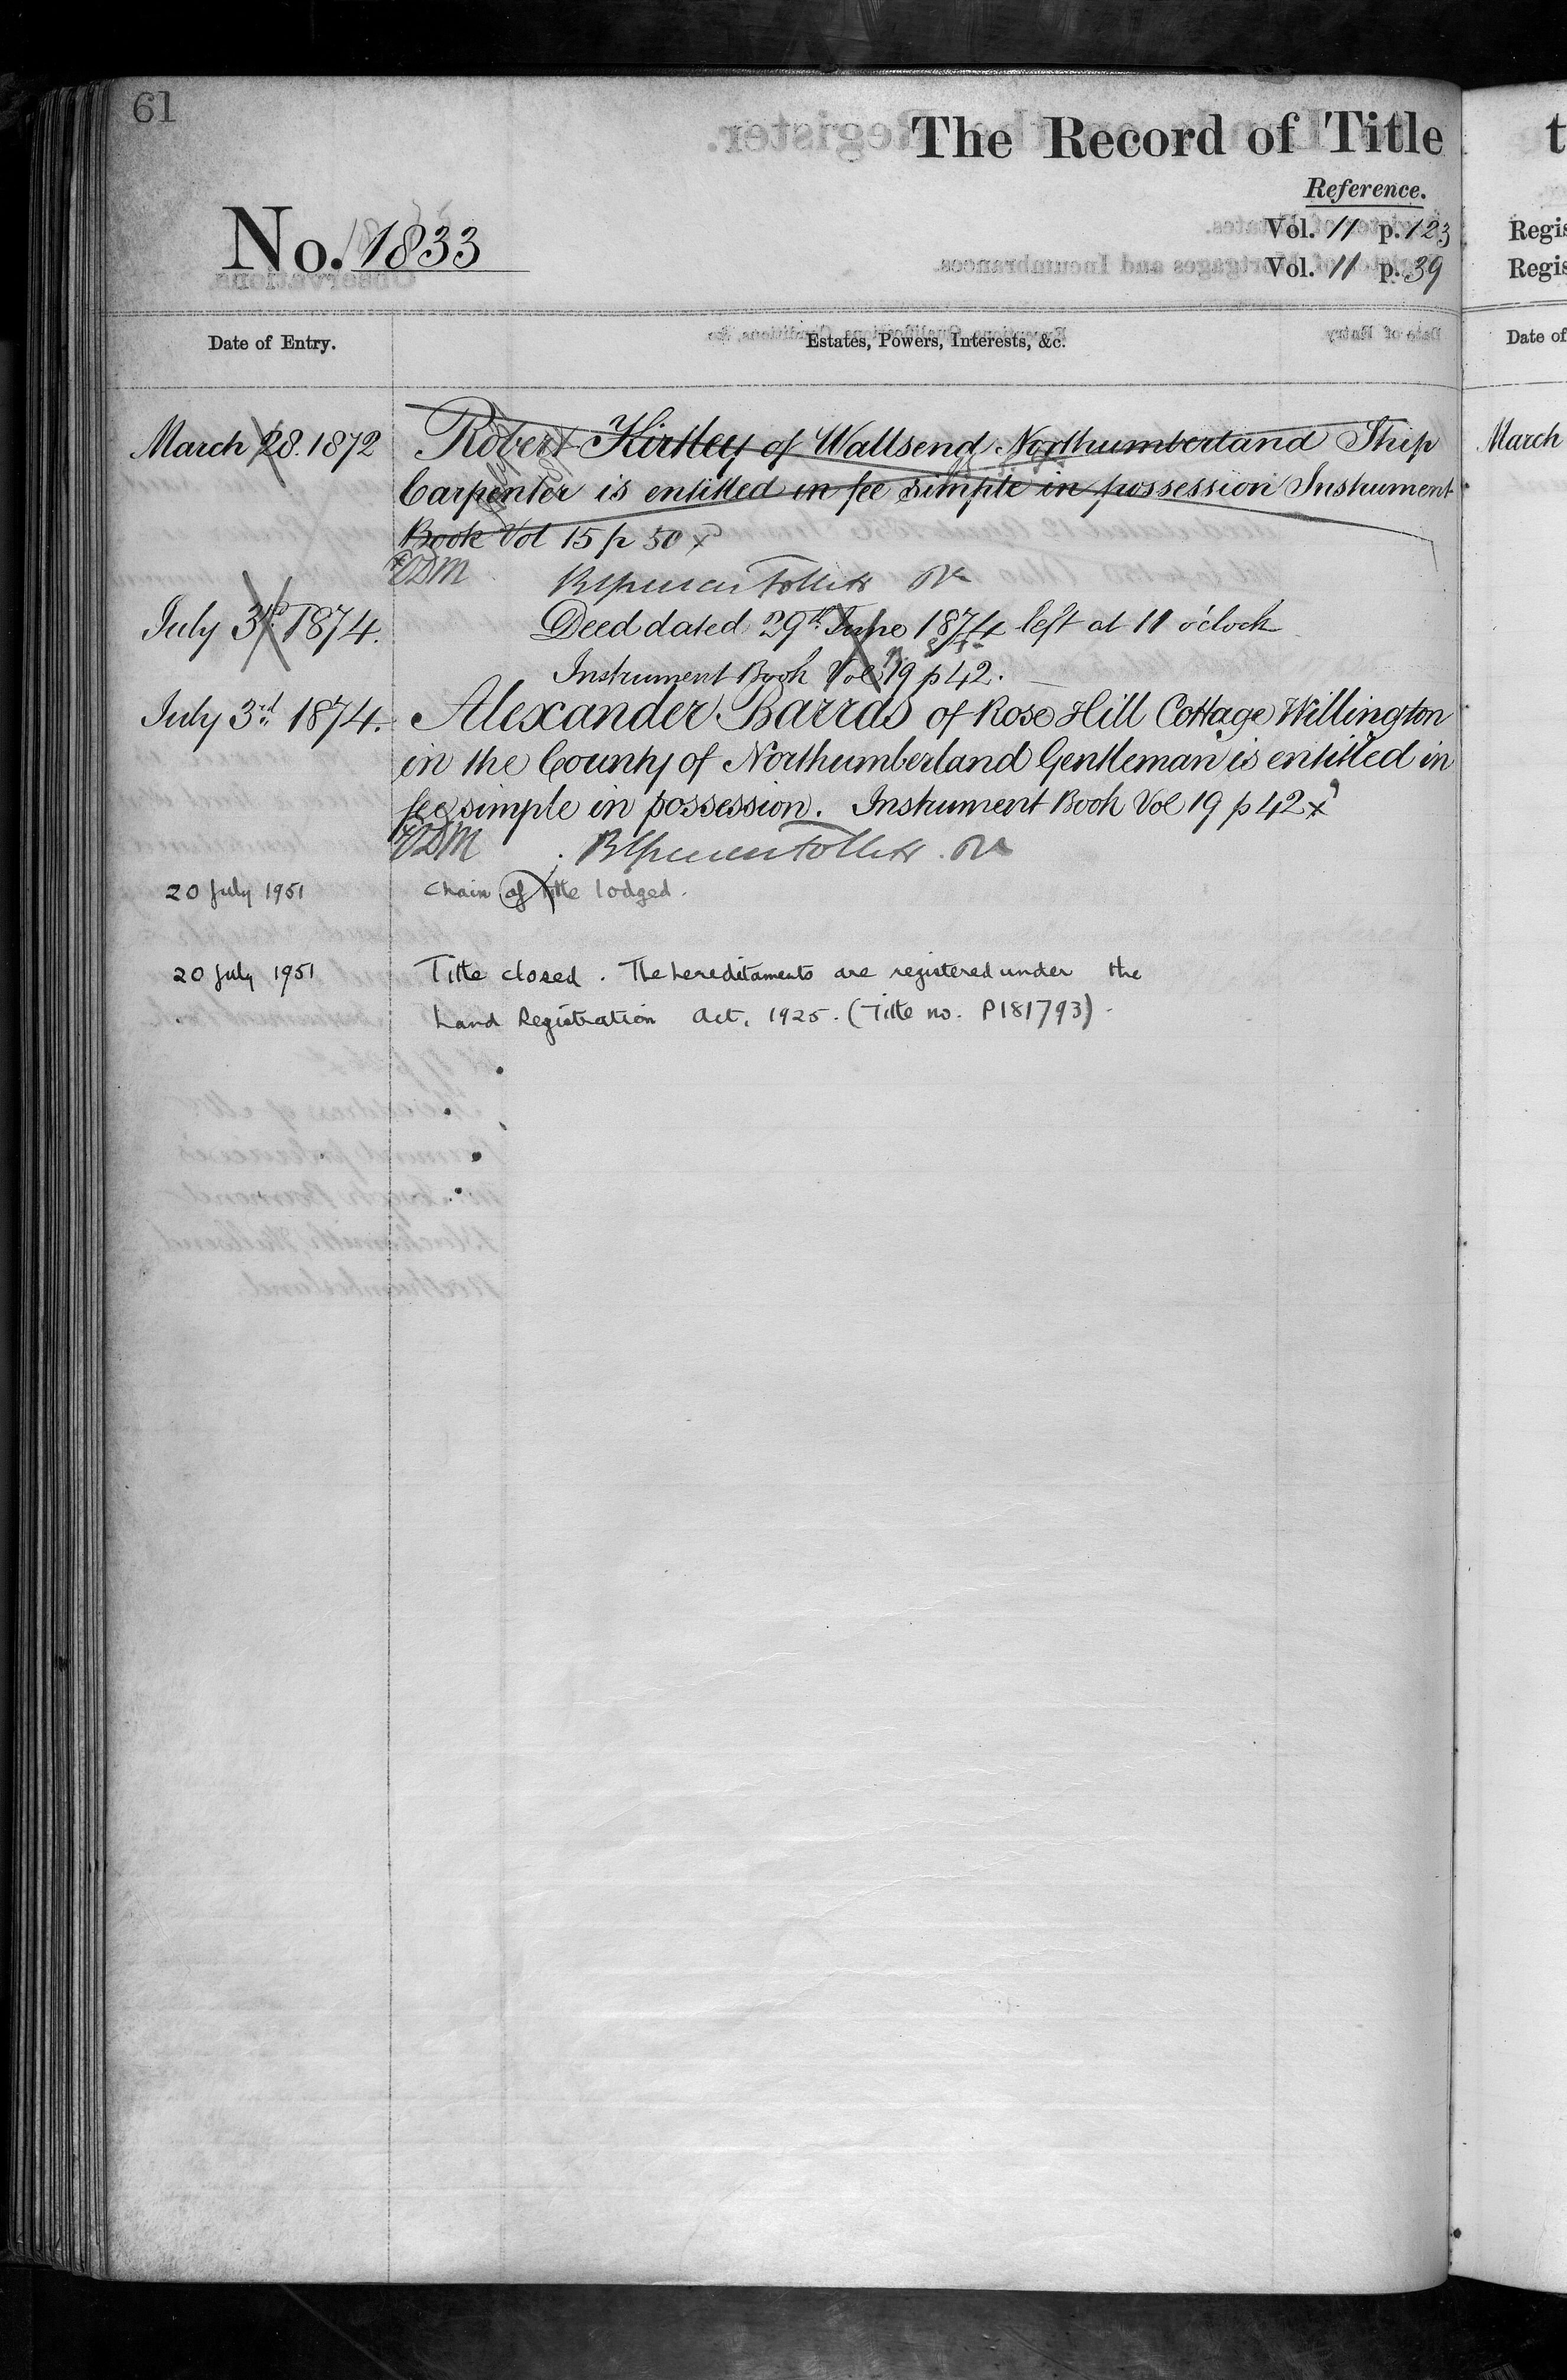 61
The Record of Title
Reference.
No. 1833
Vol. 11 p. 123
Vol. 11 p. 39
Date of Entry.
Estates, Powers, Interests, &c.
March 28. 1872
Robert Kirtley of Wallsend Northumberland Ship
Carpenter is entitled in fee simple in possession Instrument
Book Vol 15 p 50 x
July 3rd 1874.
Deed dated 29th June 1874 left at 11 o'clock
Instrument Book Vol 19 p 42.
July 3rd 1874.
Alexander Barras of Rose Hill Cottage Willington
in the County of Northumberland Gentleman is entitled in
fee simple in possession. Instrument Book Vol 19 p 42 x
20 July 1951
Chain of title lodged.
20 July 1951
Title closed. The hereditaments are registered under the
Land Registration Act, 1925. (Title no. P181793).
t
Regis
Regis
Date of
March